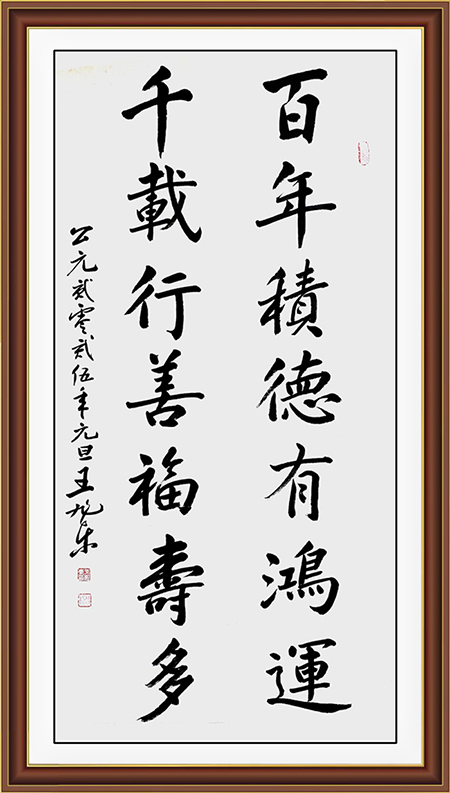 百年積德有鴻運
千載行善福壽多
公元貳零貳伍年元旦王旭东